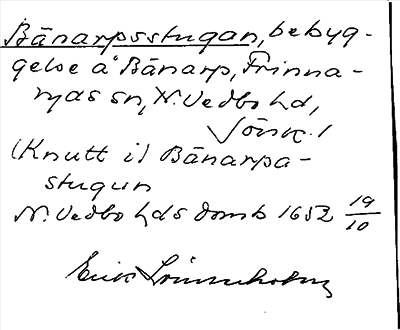 Bänarpsstugan, bebyg-
gelse å Bänarp, Frinna-
ryds sn, N. Vedbo hd,
Jönk. l
(Knutt i) Bänarpa-
stugun
N. Vedbo hds domb 1652 19/10
Erik Lönnerholm